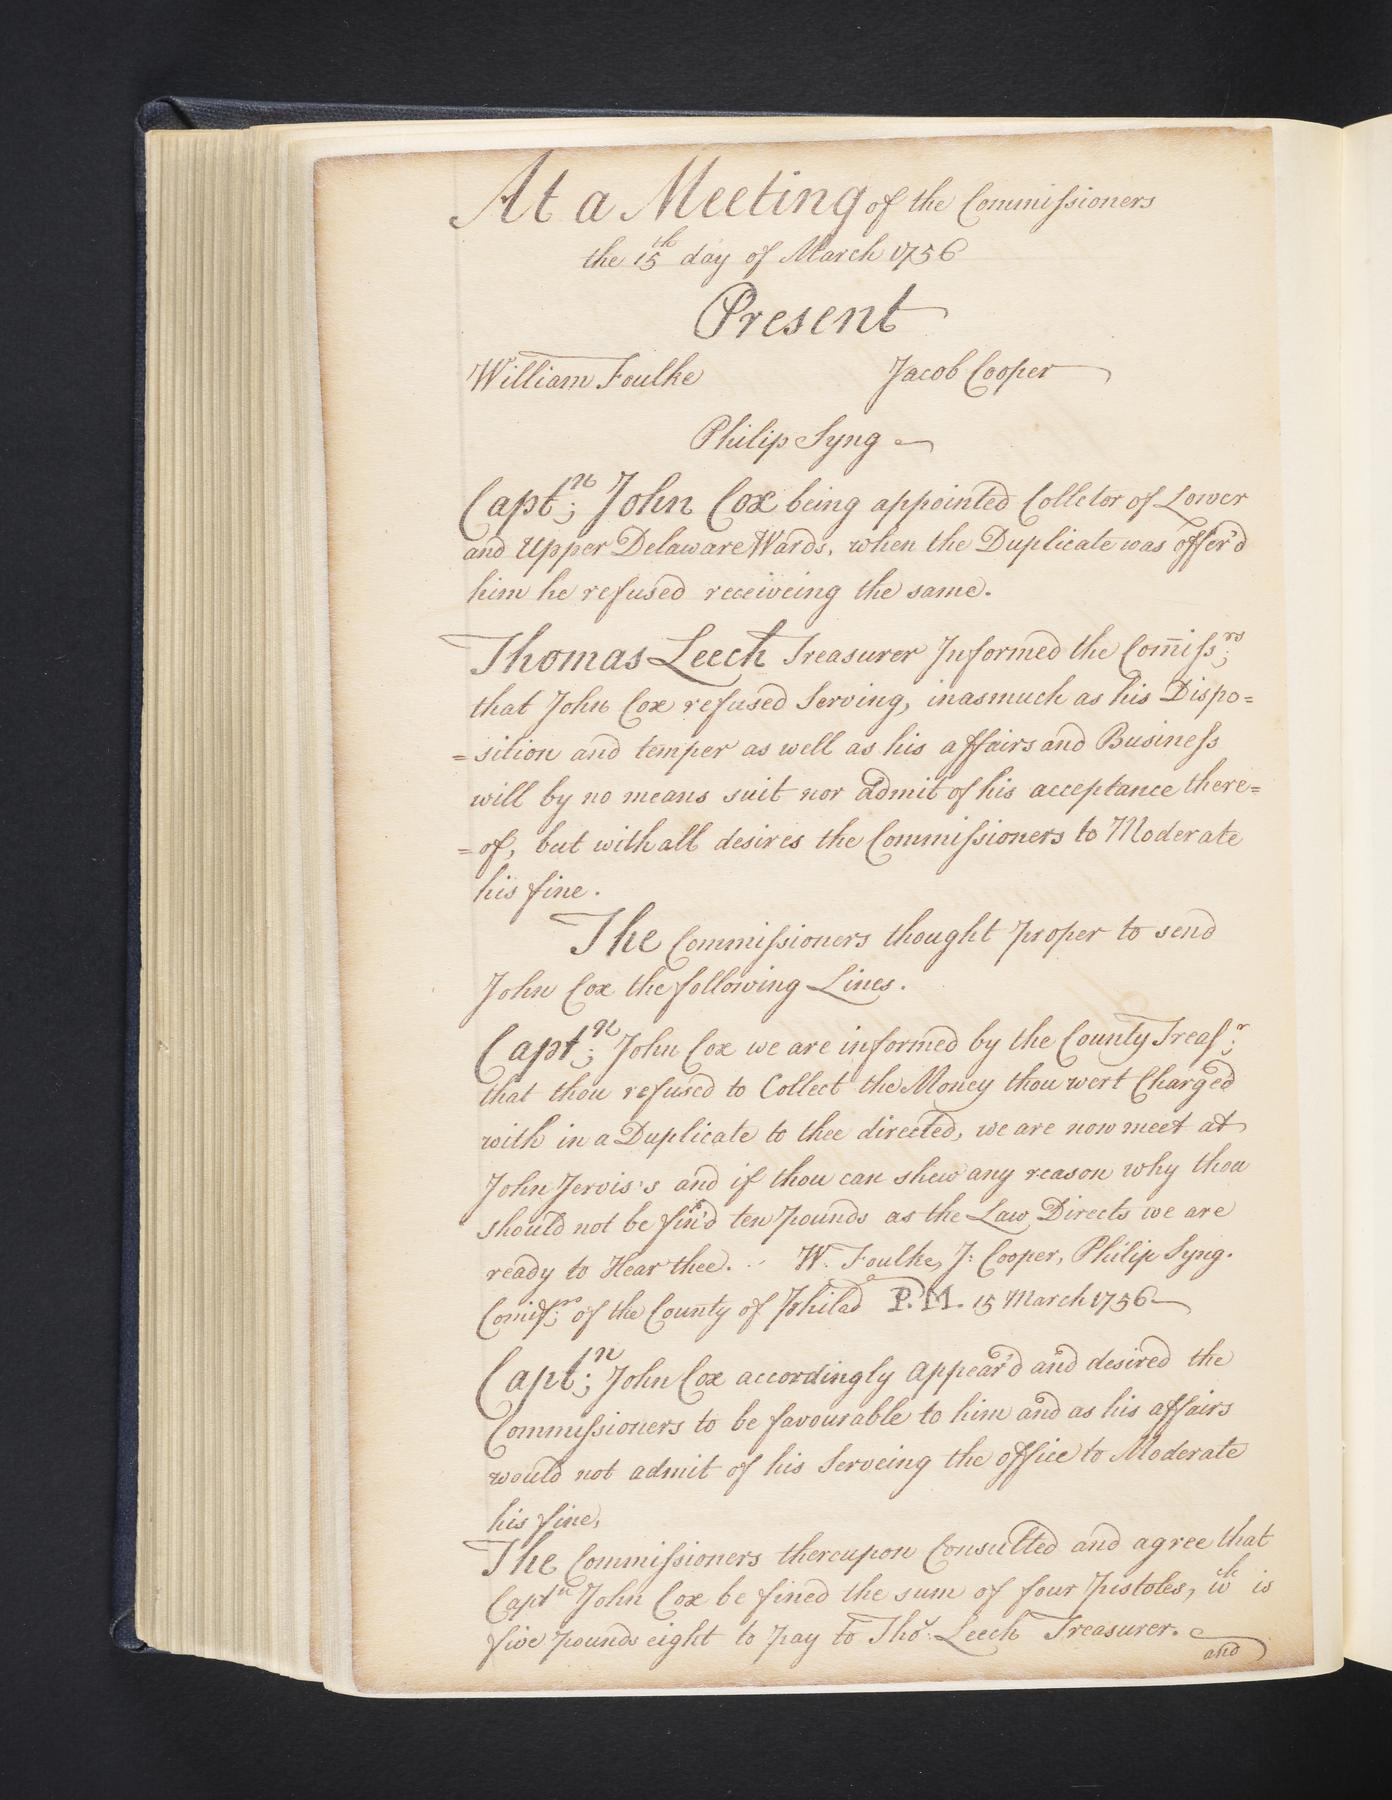 At a Meeting of the Commiſsioners
the 15th day of March 1756
Present
William Foulke Jacob Cooper
Philip Syng
Captn; John Cox being appointed Colletor of Lower
and Upper Delaware Wards, when the Duplicate was offer'd
him he refused receiveing the same.
Thomas Leech Treasurer Informed the Com̅iſsrs;
that John Cox refused Serving, inasmuch as his Dispo=
=sition and temper as well as his affairs and Busineſs
will by no means suit nor admit of his acceptance there=
=of, but withall desires the Commiſsioners to Moderate
his fine.
The Commiſsioners thought proper to send
John Cox the following Lines.
Captn; John Cox we are informed by the County Treasr;
that thou refused to Collect the Money thou wert Charged
with in a Duplicate to thee directed, we are now meet at
John Jervis's and if thou can shew any reason why thou
should not be fin'd ten pounds as the Law Directs we are
ready to Hear thee. W. Foulke, J: Cooper, Philip Syng.
Comiſrs; of the County of Philad P.M. 15 March 1756
Captn; John Cox accordingly appear'd and desired the
Commiſsioners to be favourable to him and as his affairs
would not admit of his Serveing the office to Moderate
his fine,
The Commiſsioners thereupon Consulted and agree that
Captn John Cox be fined the sum of four Pistoles, wch is
five pounds eight to pay to Thos. Leech Treasurer.
and